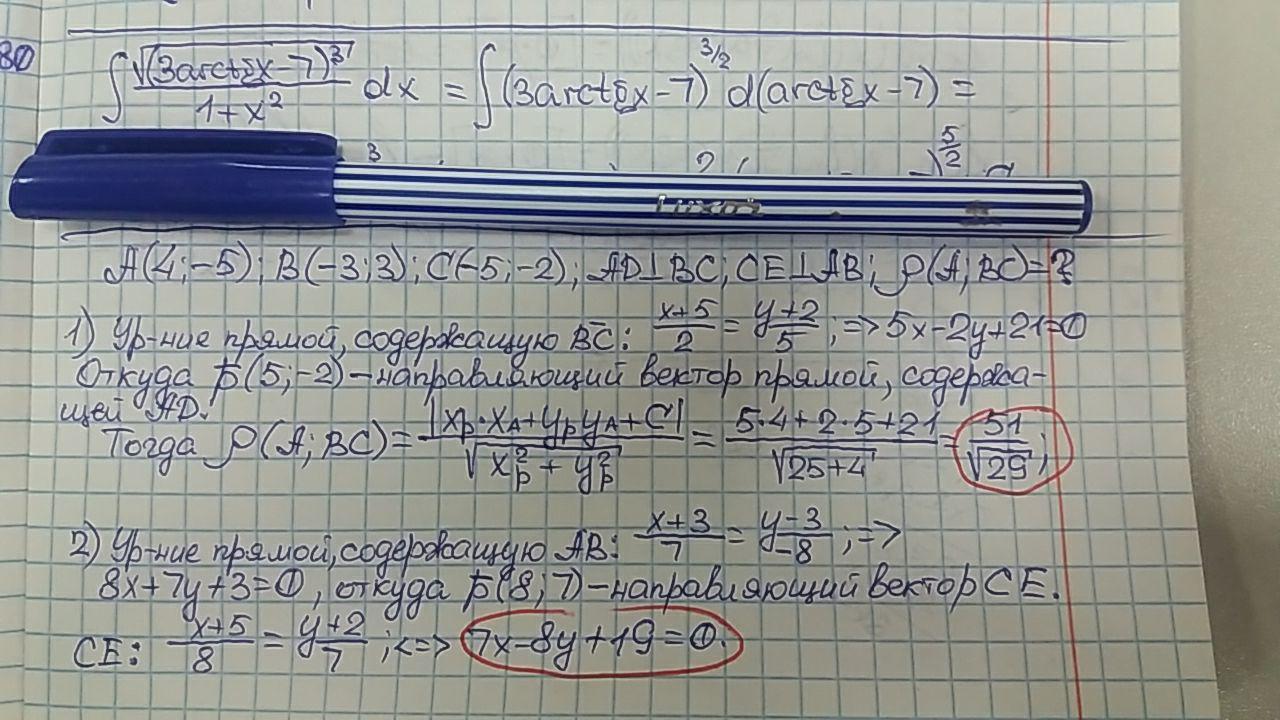 80
∫ √(3arctgx-7)³ / 1+x² dx = ∫(3arctgx-7)^3/2 d(arctgx-7) =
3 2 ( )^5/2
Luxor
A(4;-5); B(-3;3); C(-5;-2); AD⊥BC; CE⊥AB; ρ(A;BC)=?
1) Ур-ние прямой, содержащую BC: x+5/2 = y+2/5 ;=> 5x-2y+21=0
Откуда p̄(5;-2)-направляющий вектор прямой, содержа-
щей AD.
Тогда ρ(A;BC)= |xp·xA+ypyA+C| / √xp²+yp² = 5·4+2·5+21 / √25+4 = 51/√29;
2) Ур-ние прямой, содержащую AB: x+3/7 = y-3/-8 ;=>
8x+7y+3=0, откуда p̄(8;7)-направляющий вектор CE.
CE: x+5/8 = y+2/7 ;<=> 7x-8y+19=0.